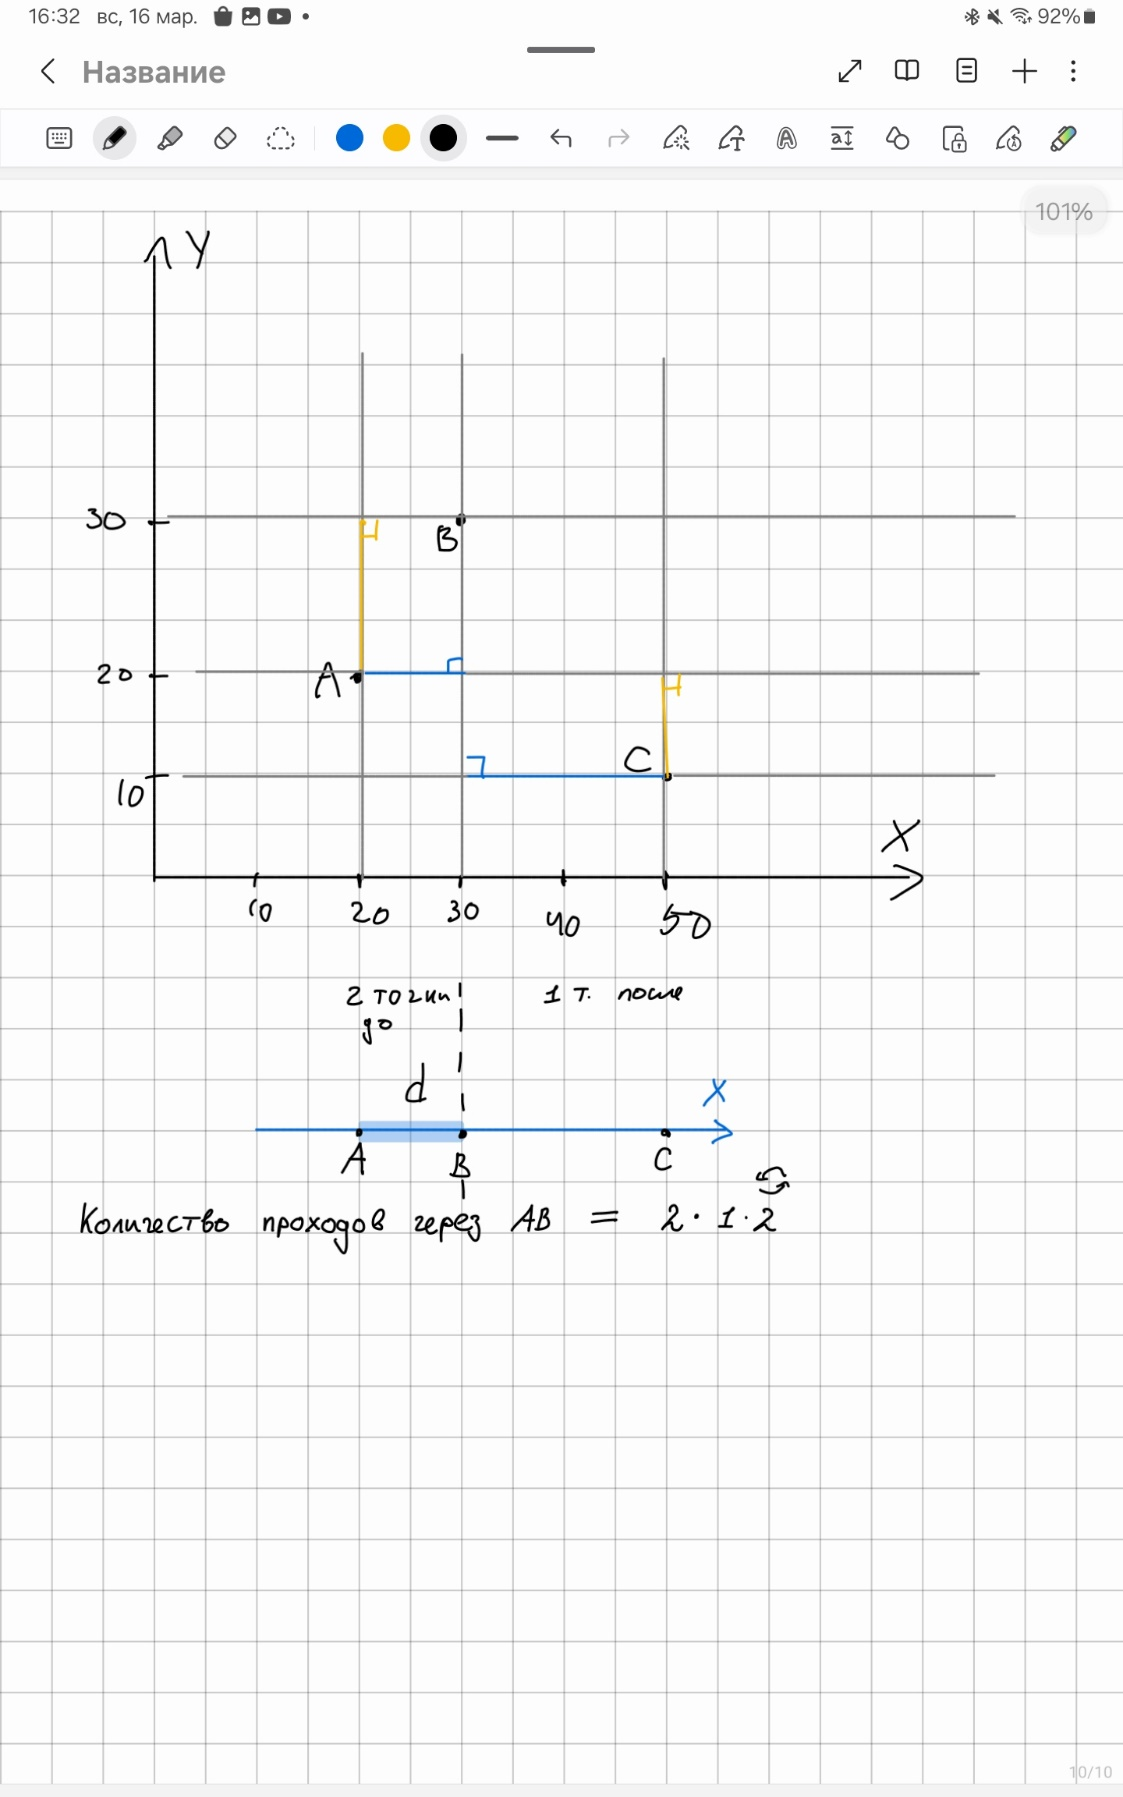 16:32 вс, 16 мар.
92%
Название
101%
Y
30
B
20
A
C
10
X
10 20 30 40 50
2 точки 1 т. после
до
d
X
A B C
Количество проходов через AB = 2 · 1 · 2
10/10